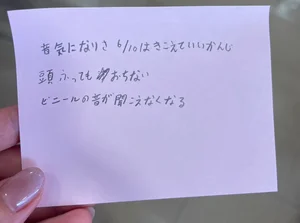 音気になりさ 6/10はきこえていいかんじ
頭ふっても おちない
ビニールの音が聞こえなくなる